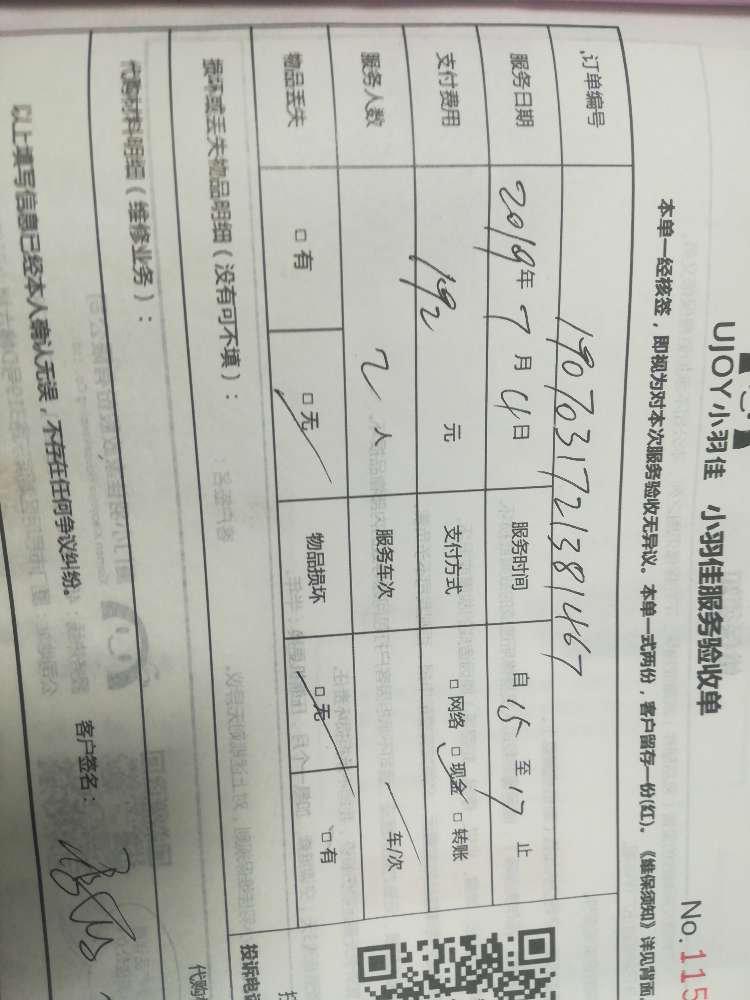 UJOY小羽佳 小羽佳服务验收单
No.115
本单一经核签，即视为对本次服务验收无异议。本单一式两份，客户留存一份(红)。《维保须知》详见背面
订单编号 1907031721381467
服务日期 2019年7月4日 服务时间 自15至17止
支付费用 192元 支付方式 □网络 □现金 □转账
服务人数 2人 服务车次 / 车/次
物品丢失 □有 □无 物品损坏 □无 □有
损坏或丢失物品明细（没有可不填）：
投诉电
代购材料明细（维修业务）：
代购
以上填写信息已经本人确认无误，不存在任何争议纠纷。
客户签名：